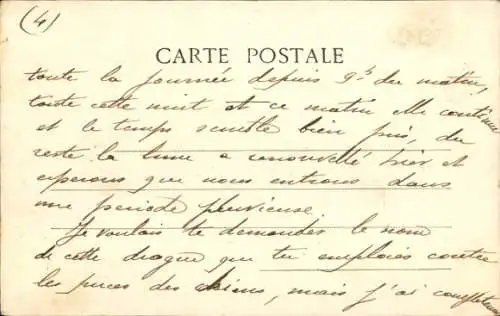 (4)
CARTE POSTALE
toute la journée depuis 9h du matin,
toute cette nuit et ce matin elle continue
et le temps semble bien pris, du
reste la lune a renouvelé hier et
esperons que nous entrons dans
une periode pluvieuse.
Je voulais te demander le nom
de cette drogue que tu emploies contre
les puces des chiens, mais j'ai complètement